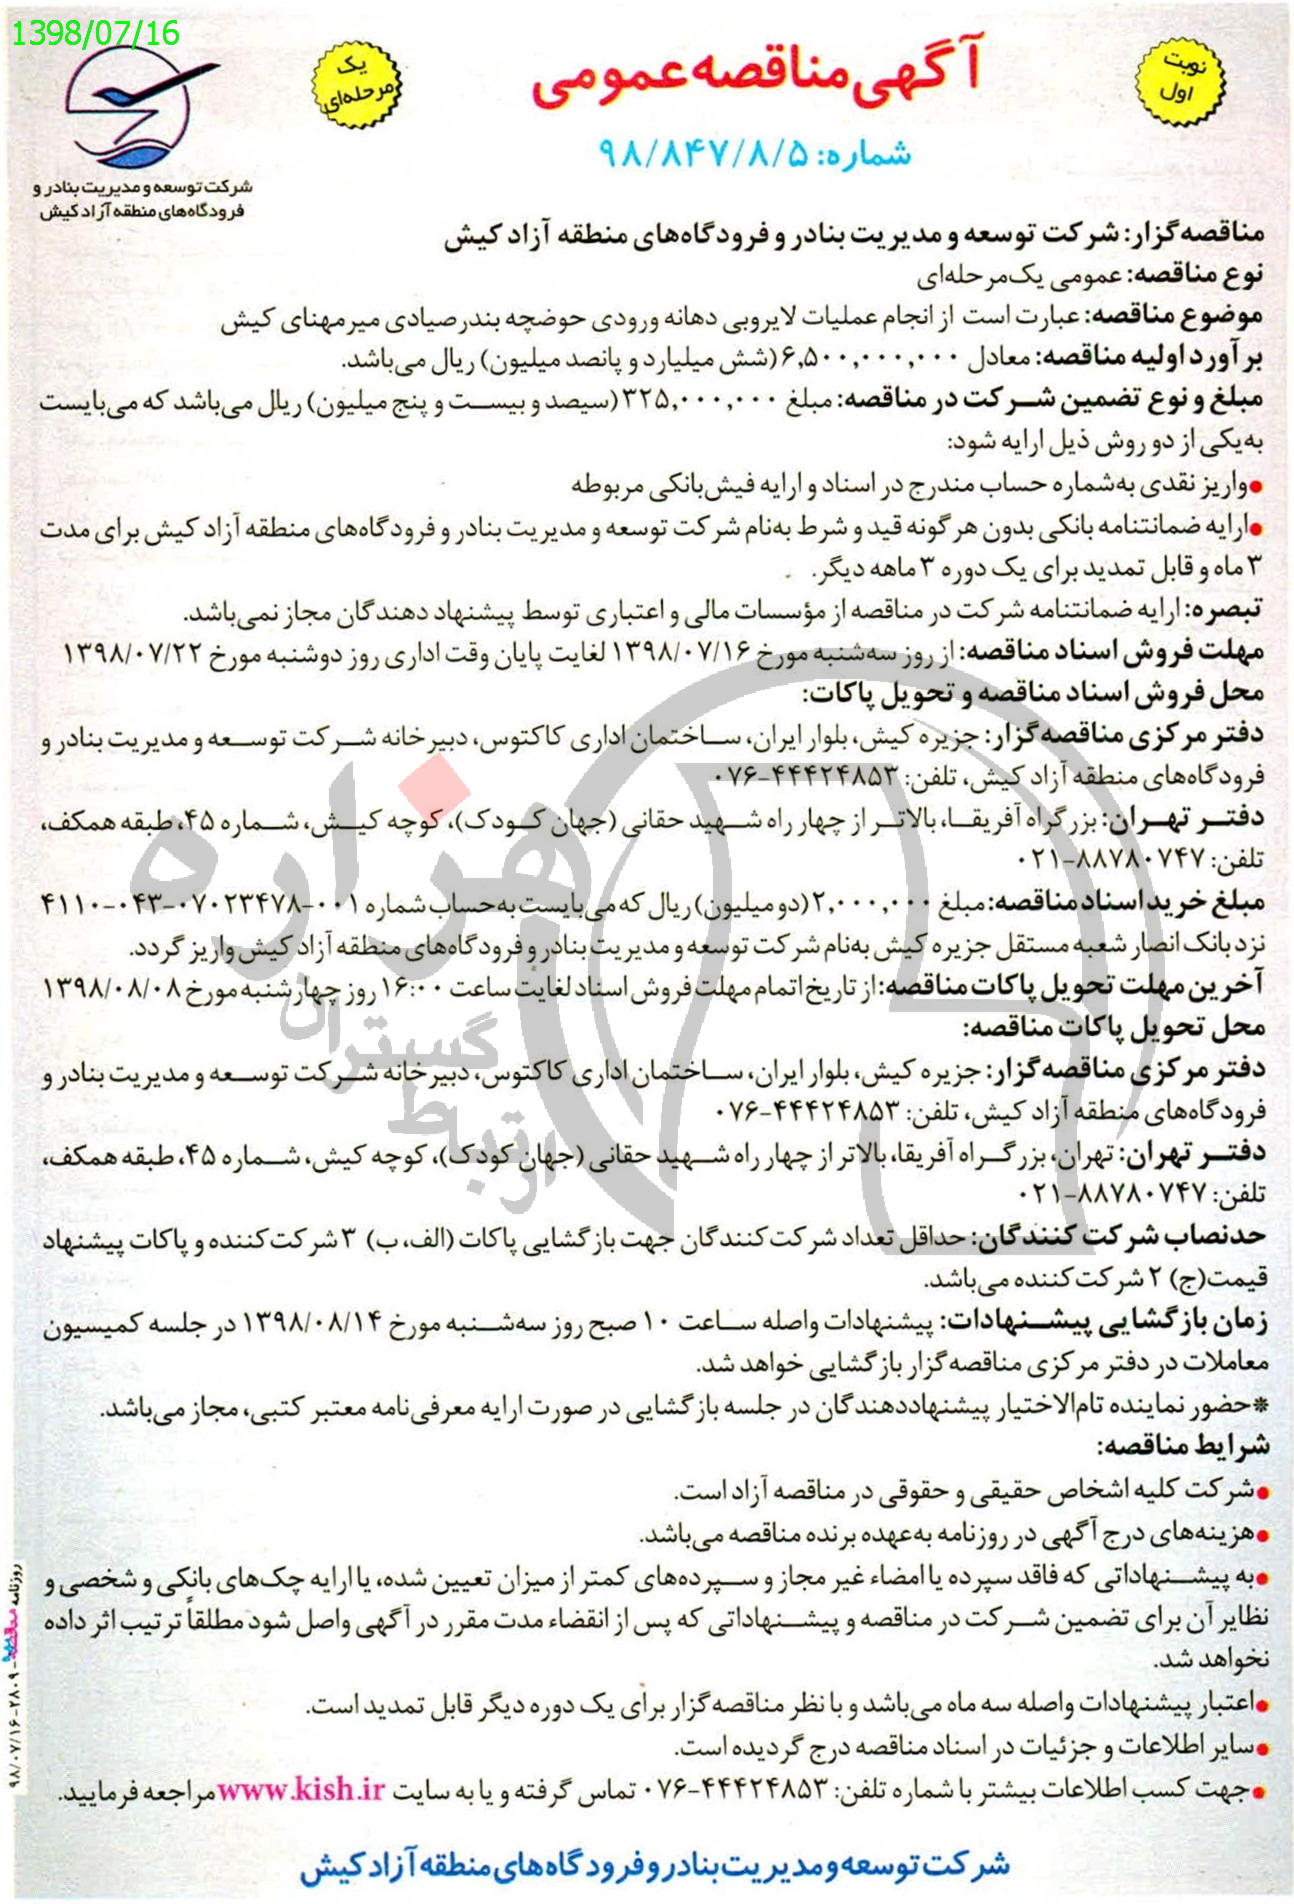 1398/07/16
نوبت
اول
آگهی مناقصه عمومی
یک
مرحله‌ای
شماره: ۹۸/۸۴۷/۸/۵
شرکت توسعه و مدیریت بنادر و
فرودگاه‌های منطقه آزاد کیش
مناقصه‌گزار: شرکت توسعه و مدیریت بنادر و فرودگاه‌های منطقه آزاد کیش
نوع مناقصه: عمومی یک‌مرحله‌ای
موضوع مناقصه: عبارت است از انجام عملیات لایروبی دهانه ورودی حوضچه بندر صیادی میر مهنای کیش
برآورد اولیه مناقصه: معادل ۶,۵۰۰,۰۰۰,۰۰۰ (شش میلیارد و پانصد میلیون) ریال می‌باشد.
مبلغ و نوع تضمین شرکت در مناقصه: مبلغ ۳۲۵,۰۰۰,۰۰۰ (سیصد و بیست و پنج میلیون) ریال می‌باشد که می‌بایست
به‌یکی از دو روش ذیل ارایه شود:
●واریز نقدی به‌شماره حساب مندرج در اسناد و ارایه فیش‌بانکی مربوطه
●ارایه ضمانتنامه بانکی بدون هر گونه قید و شرط به‌نام شرکت توسعه و مدیریت بنادر و فرودگاه‌های منطقه آزاد کیش برای مدت
۳ ماه و قابل تمدید برای یک دوره ۳ ماهه دیگر.
تبصره: ارایه ضمانتنامه شرکت در مناقصه از مؤسسات مالی و اعتباری توسط پیشنهاد دهندگان مجاز نمی‌باشد.
مهلت فروش اسناد مناقصه: از روز سه‌شنبه مورخ ۱۳۹۸/۰۷/۱۶ لغایت پایان وقت اداری روز دوشنبه مورخ ۱۳۹۸/۰۷/۲۲
محل فروش اسناد مناقصه و تحویل پاکات:
دفتر مرکزی مناقصه‌گزار: جزیره کیش، بلوار ایران، ساختمان اداری کاکتوس، دبیرخانه شرکت توسعه و مدیریت بنادر و
فرودگاه‌های منطقه آزاد کیش، تلفن: ۴۴۴۲۴۸۵۳-۰۷۶
دفتر تهران: بزرگراه آفریقا، بالاتر از چهار راه شهید حقانی (جهان کودک)، کوچه کیش، شماره ۴۵، طبقه همکف،
تلفن: ۸۸۷۸۰۷۴۷-۰۲۱
مبلغ خرید اسناد مناقصه: مبلغ ۲,۰۰۰,۰۰۰ (دو میلیون) ریال که می‌بایست به‌حساب شماره ۰۰۱-۰۷۰۲۳۴۷۸-۰۴۳-۴۱۱۰
نزد بانک انصار شعبه مستقل جزیره کیش به‌نام شرکت توسعه و مدیریت بنادر و فرودگاه‌های منطقه آزاد کیش واریز گردد.
آخرین مهلت تحویل پاکات مناقصه: از تاریخ اتمام مهلت فروش اسناد لغایت ساعت ۱۶:۰۰ روز چهارشنبه مورخ ۱۳۹۸/۰۸/۰۸
محل تحویل پاکات مناقصه:
دفتر مرکزی مناقصه‌گزار: جزیره کیش، بلوار ایران، ساختمان اداری کاکتوس، دبیرخانه شرکت توسعه و مدیریت بنادر و
فرودگاه‌های منطقه آزاد کیش، تلفن: ۴۴۴۲۴۸۵۳-۰۷۶
دفتر تهران: تهران، بزرگراه آفریقا، بالاتر از چهار راه شهید حقانی (جهان کودک)، کوچه کیش، شماره ۴۵، طبقه همکف،
تلفن: ۸۸۷۸۰۷۴۷-۰۲۱
حدنصاب شرکت کنندگان: حداقل تعداد شرکت‌کنندگان جهت بازگشایی پاکات (الف، ب) ۳ شرکت‌کننده و پاکات پیشنهاد
قیمت(ج) ۲ شرکت‌کننده می‌باشد.
زمان بازگشایی پیشنهادات: پیشنهادات واصله ساعت ۱۰ صبح روز سه‌شنبه مورخ ۱۳۹۸/۰۸/۱۴ در جلسه کمیسیون
معاملات در دفتر مرکزی مناقصه‌گزار بازگشایی خواهد شد.
*حضور نماینده تام‌الاختیار پیشنهاددهندگان در جلسه بازگشایی در صورت ارایه معرفی‌نامه معتبر کتبی، مجاز می‌باشد.
شرایط مناقصه:
●شرکت کلیه اشخاص حقیقی و حقوقی در مناقصه آزاد است.
●هزینه‌های درج آگهی در روزنامه به‌عهده برنده مناقصه می‌باشد.
●به پیشنهاداتی که فاقد سپرده یا امضاء غیر مجاز و سپرده‌های کمتر از میزان تعیین شده، یا ارایه چک‌های بانکی و شخصی و
نظایر آن برای تضمین شرکت در مناقصه و پیشنهاداتی که پس از انقضاء مدت مقرر در آگهی واصل شود مطلقاً ترتیب اثر داده
نخواهد شد.
●اعتبار پیشنهادات واصله سه ماه می‌باشد و با نظر مناقصه‌گزار برای یک دوره دیگر قابل تمدید است.
●سایر اطلاعات و جزئیات در اسناد مناقصه درج گردیده است.
●جهت کسب اطلاعات بیشتر با شماره تلفن: ۴۴۴۲۴۸۵۳-۰۷۶ تماس گرفته و یا به سایت www.kish.ir مراجعه فرمایید.
شرکت توسعه و مدیریت بنادر و فرودگاه‌های منطقه آزاد کیش
روزنامه مناقصه - ۲۸۰۹-۹۸/۰۷/۱۶
هزاره
گستران
ارتباط